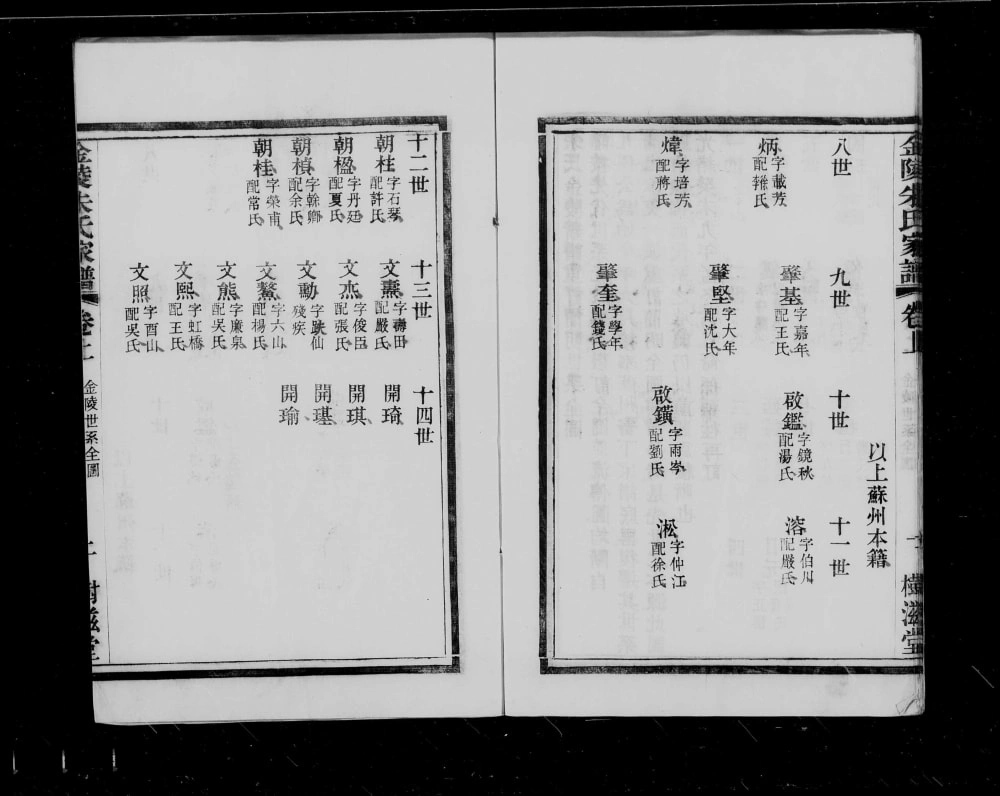 金陵朱氏家譜 卷上 樹滋堂
以上蘇州本籍
八世 九世 十世 十一世
炳 字載芳 配
肇基 字嘉年 配王氏
啟鑑 字鏡秋 配湯氏
溶 字伯川 配嚴氏
肇堅 字大年 配沈氏
煒 字培芳 配蔣氏
啟鐄 字雨岑 配劉氏
淞 字仲江 配徐氏
肇奎 字學年 配錢氏
十二世 十三世 十四世
朝柱 字石琴 配許氏
文燾 字壽田 配嚴氏
開琦
朝楹 字丹廷 配夏氏
文杰 字俊臣 配張氏
開琪
朝楨 字榦卿 配余氏
文勳 字跌仙 殘疾
開瑾
朝桂 字榮甫 配常氏
文鰲 字六山 配楊氏
開瑜
文熊 字廉泉 配吳氏
文熙 字虹橋 配王氏
文照 字酉山 配吳氏
金陵朱氏家譜 卷上 金陵世系全圖 二 樹滋堂